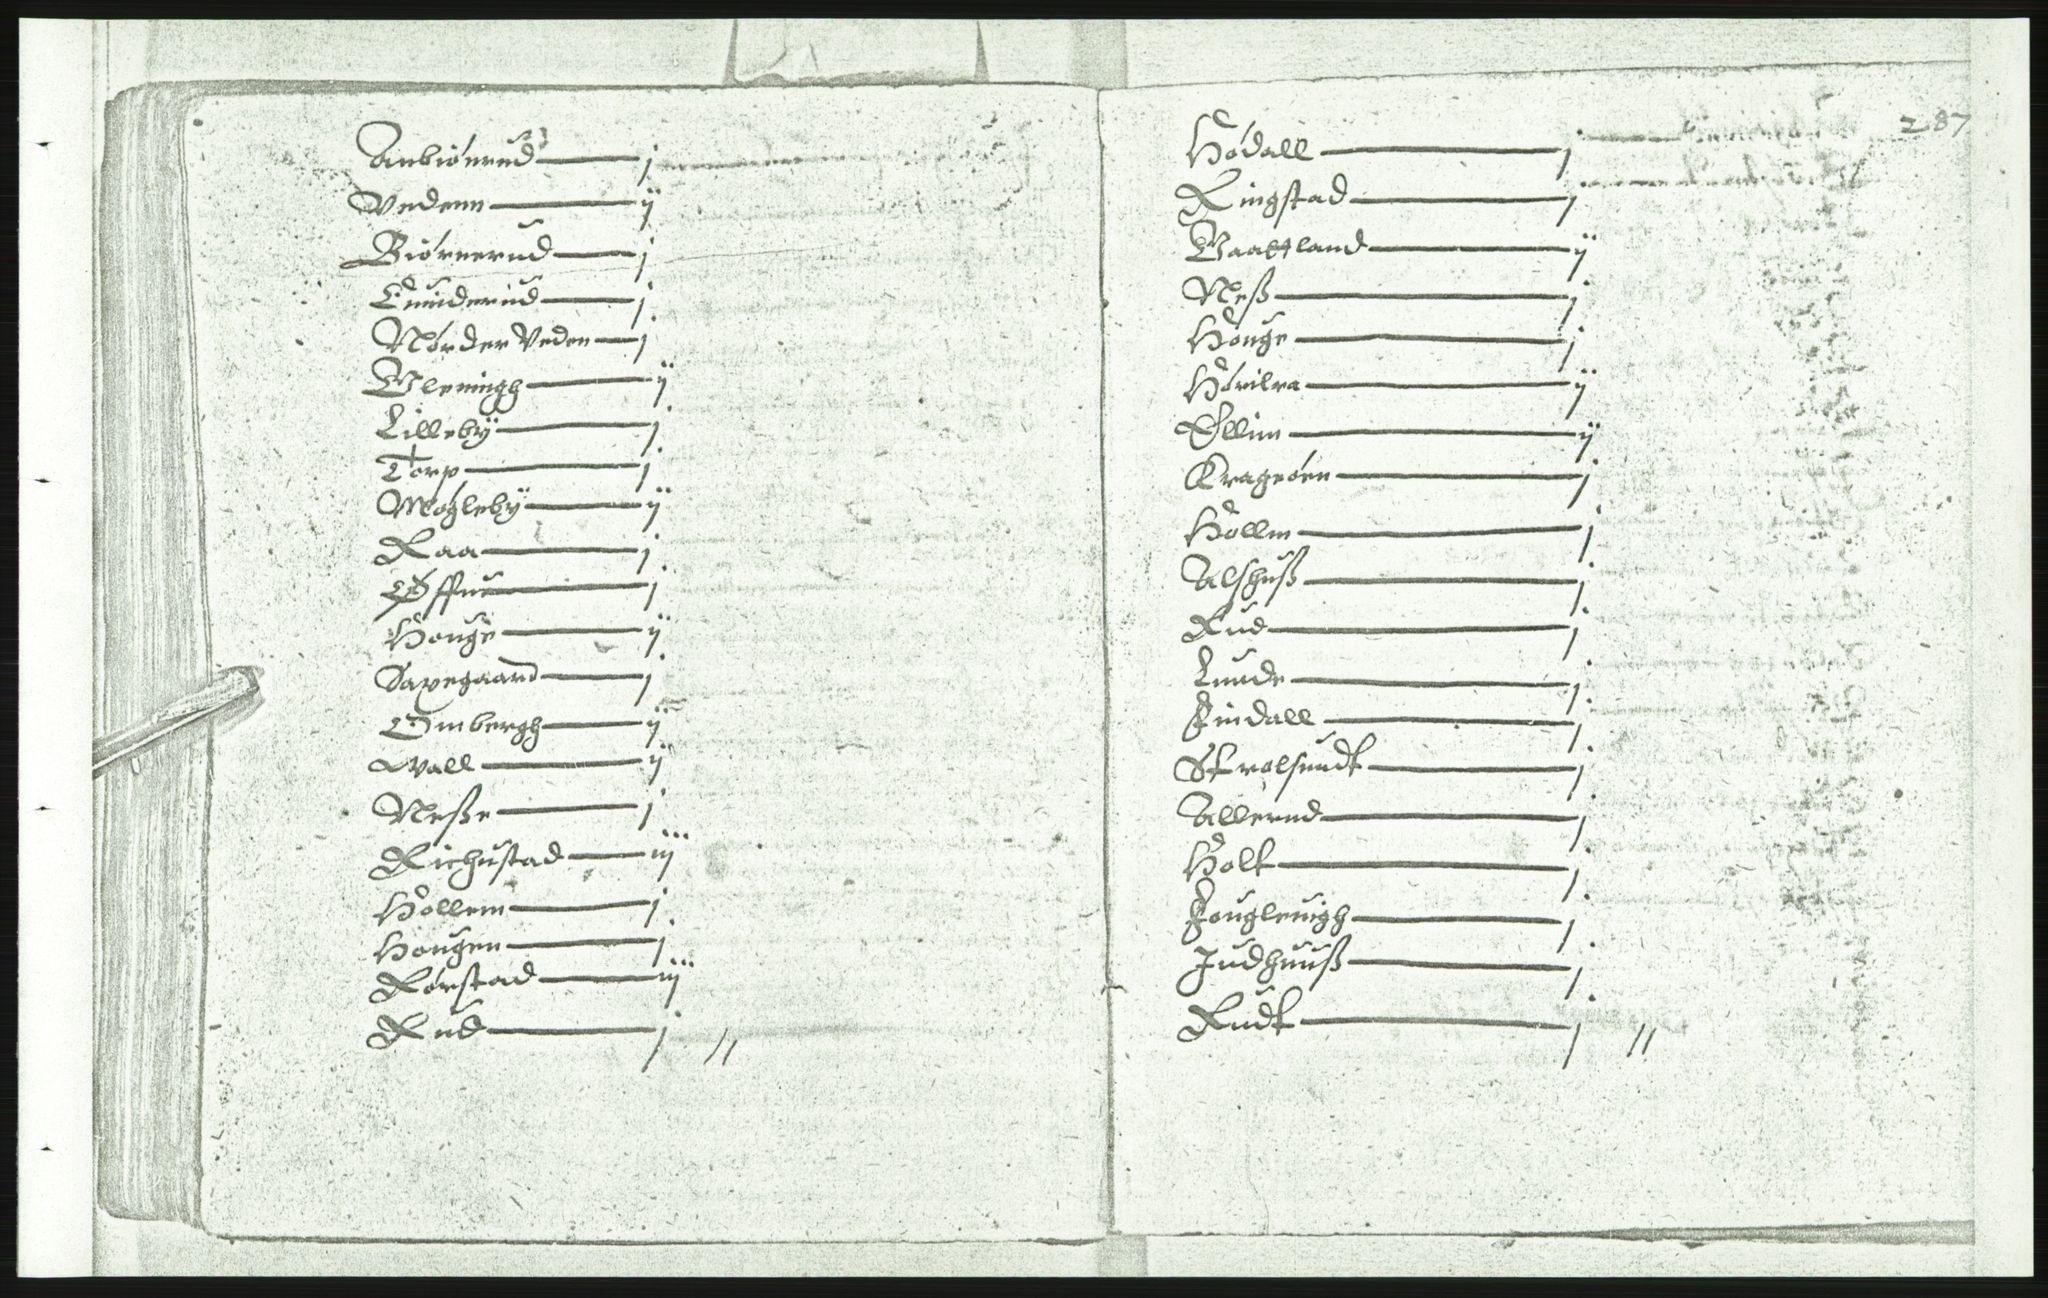 Anbiönrud j
Vedenn ij
Biörnerud j
Gunderud j
Nörder Veden j
Bleningh ij
Lillebÿ j
Torp j
Möglebÿ ij
Raa j
Houge ij
Saxegaard j
Ombergh ij
Wall ij
Neße j
Richustad iij
Hollem j
Hougen j
Rörstad iij
Rud j //
287
Hödall j
Ringstad j
Vaattland ij
Neß j
Houge j
Höeilra ij
Öllim ij
Krageröen j
Hollm j
Alshuß j
Rud j
Lunde j
Findall j
Strölsundt j
Allerud j
Holt j
Fouglevigh j
Judhuuß j
Rudt j //